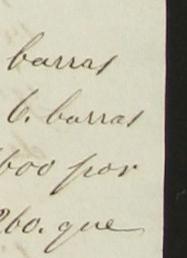 barras
6. barras
600 por
260. que